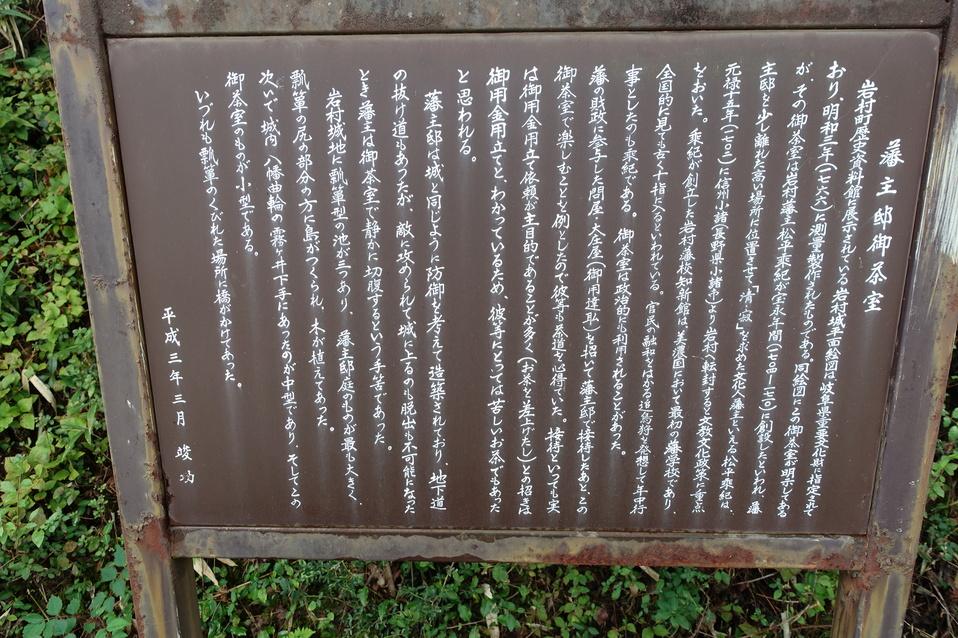 藩主邸御茶室
岩村町歴史資料館に展示されている岩村城平面絵図は岐阜県重要文化財に指定されて
おり、明和三年(一七六六)に測量製作されたものである。同絵図にこの御茶室が明示してある
が、その御茶室は岩村藩主松平乗紀が宝永年間(一七〇四―一七一〇)に創設したといわれ、藩
主邸と少し離れた高い場所に位置させて、「清寂」を求めた文化人藩主といえる松平乗紀は、
元禄十五年(一七〇二)に信州小諸(長野県小諸市)より岩村へ転封すると文教文化政策に重点
をおいた。乗紀が創立した岩村藩校知新館は、美濃国において最初の藩学校であり、
全国的に見ても古く十指に入るといわれている。官民の融和をはかる追鳥狩を発想して年中行
事としたのも乗紀である。御茶室は政治的にも利用されることがあった。
藩の財政に参与した問屋・大庄屋(御用達私)を招いて藩主邸で接待したあと、この
御茶室で楽しむことを例としたので彼等も茶道を心得ていた。接待といっても実
は御用金用立て依頼が主目的であることが多く(お茶を差上げたし)との招きは
御用金用立てと、わかっているため、彼等にとっては苦しいお茶でもあった
と思われる。
藩主邸は城と同じように防御も考えて造築されており、地下道
の抜け道もあったが、敵に攻められて城に上るのも脱出も不可能になった
とき藩主は御茶室で静かに切腹するという手筈であった。
岩村城地に瓢箪型の池が三つあり、藩主邸庭のものが最も大きく、
瓢箪の尻の部分の方に島がつくられ、木が植えてあった。
次いで城内八幡曲輪の霧ヶ井下手にあったのが中型であり、そしてこの
御茶室のものが小型である。
いづれも瓢箪のくびれた場所に橋がかけてあった。
平成三年三月 竣功